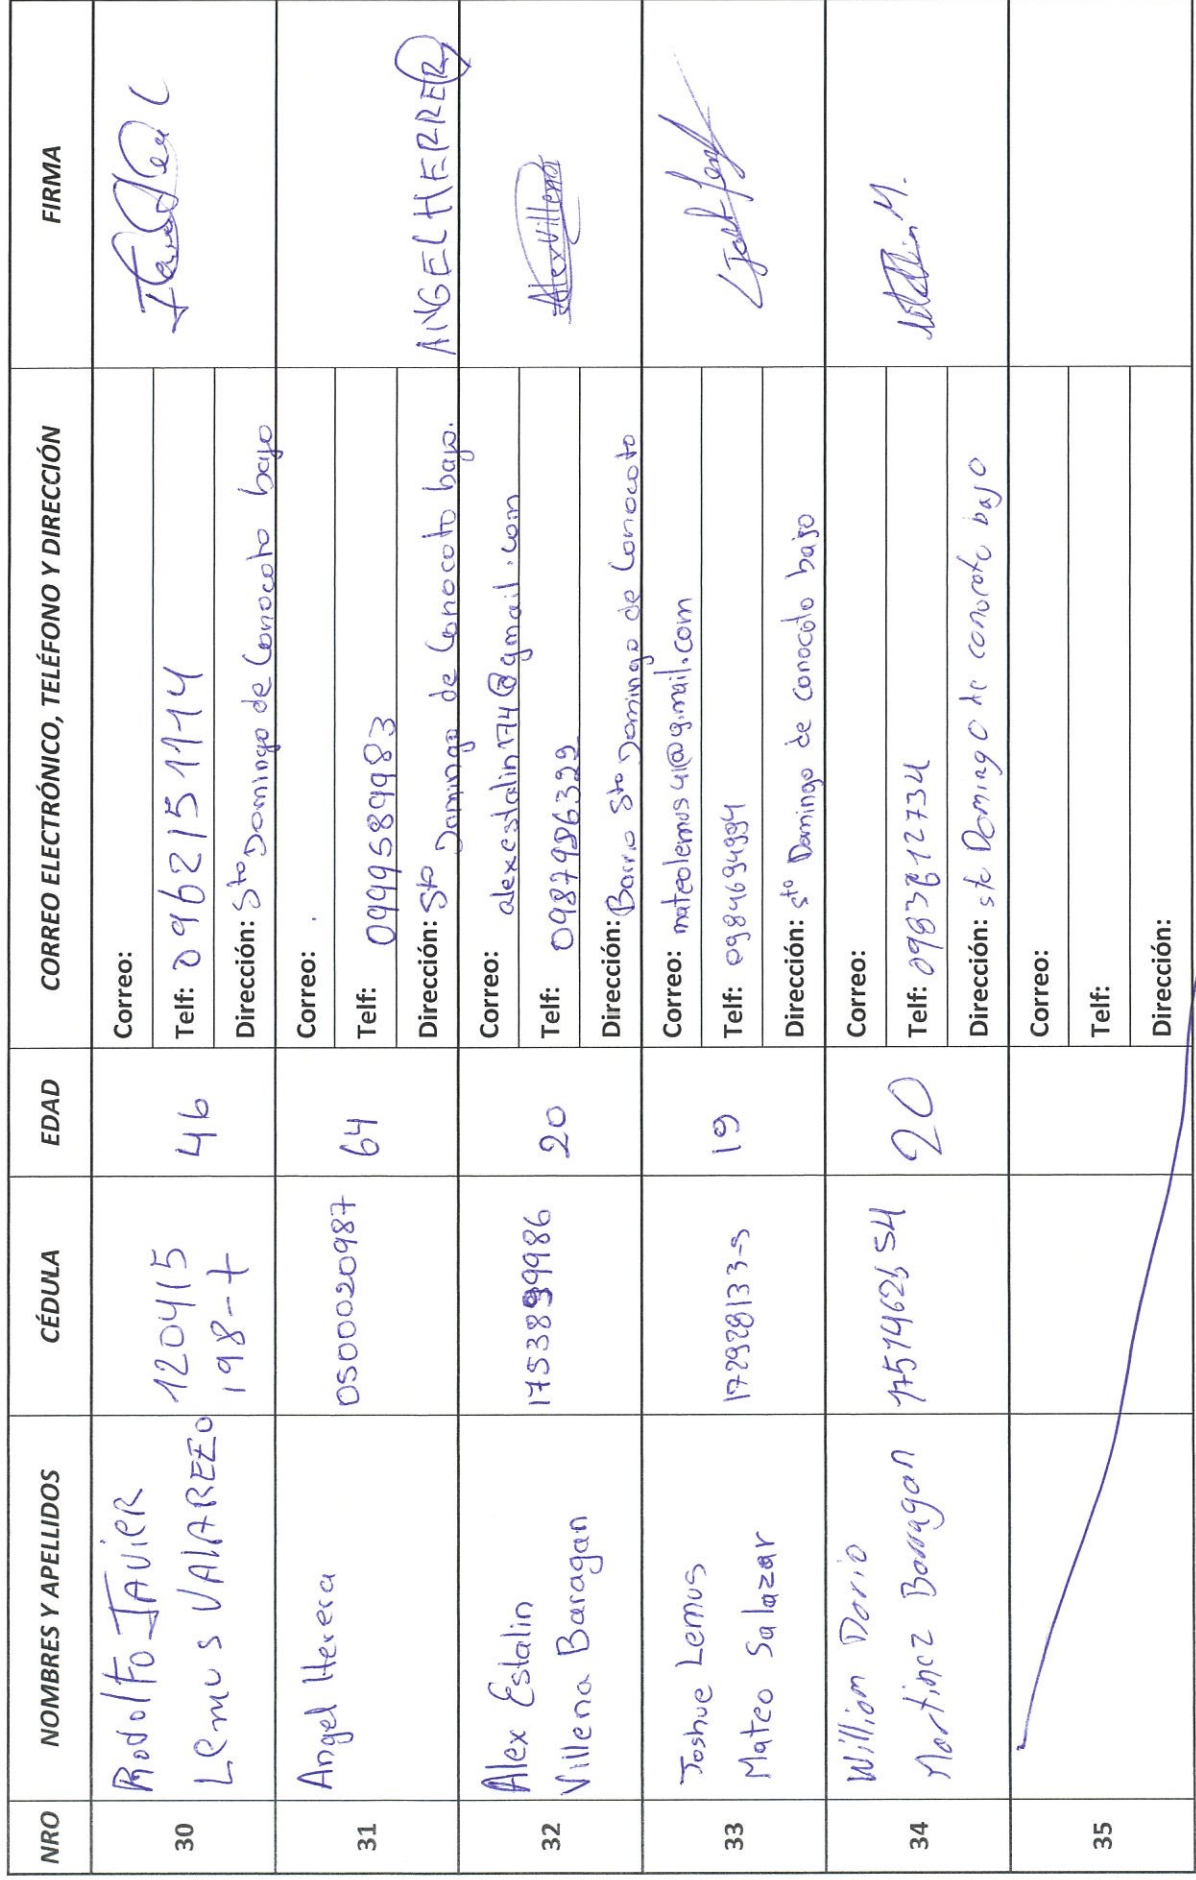 NRO NOMBRES Y APELLIDOS CÉDULA EDAD CORREO ELECTRÓNICO, TELÉFONO Y DIRECCIÓN FIRMA
30
Rodolfo JAVIER
Lemus VALAREZO
120415
198-7
46
Correo:
Telf: 0962151114
Dirección: Sto Domingo de Conocoto bajo
31
Angel Herera
0500020987
64
Correo:
Telf: 0999589983
Dirección: Sto Domingo de Conocoto bajo.
ANGEL HERRERA
32
Alex Estalin
Villena Baragan
20
Correo: alexestalin174@gmail.com
Telf: 0987986329
Dirección: Barrio Sto Domingo de Conocoto
Alex Villena
33
Joshue Lemus
Mateo Salazar
172928133-5
19
Correo: mateolemus41@gmail.com
Telf: 0984694994
Dirección: Sto Domingo de Conocoto bajo
34
William Dario
Martinez Barragan
20
Correo:
Telf:
Dirección: sto Domingo de conocoto bajo
35
Correo:
Telf:
Dirección: